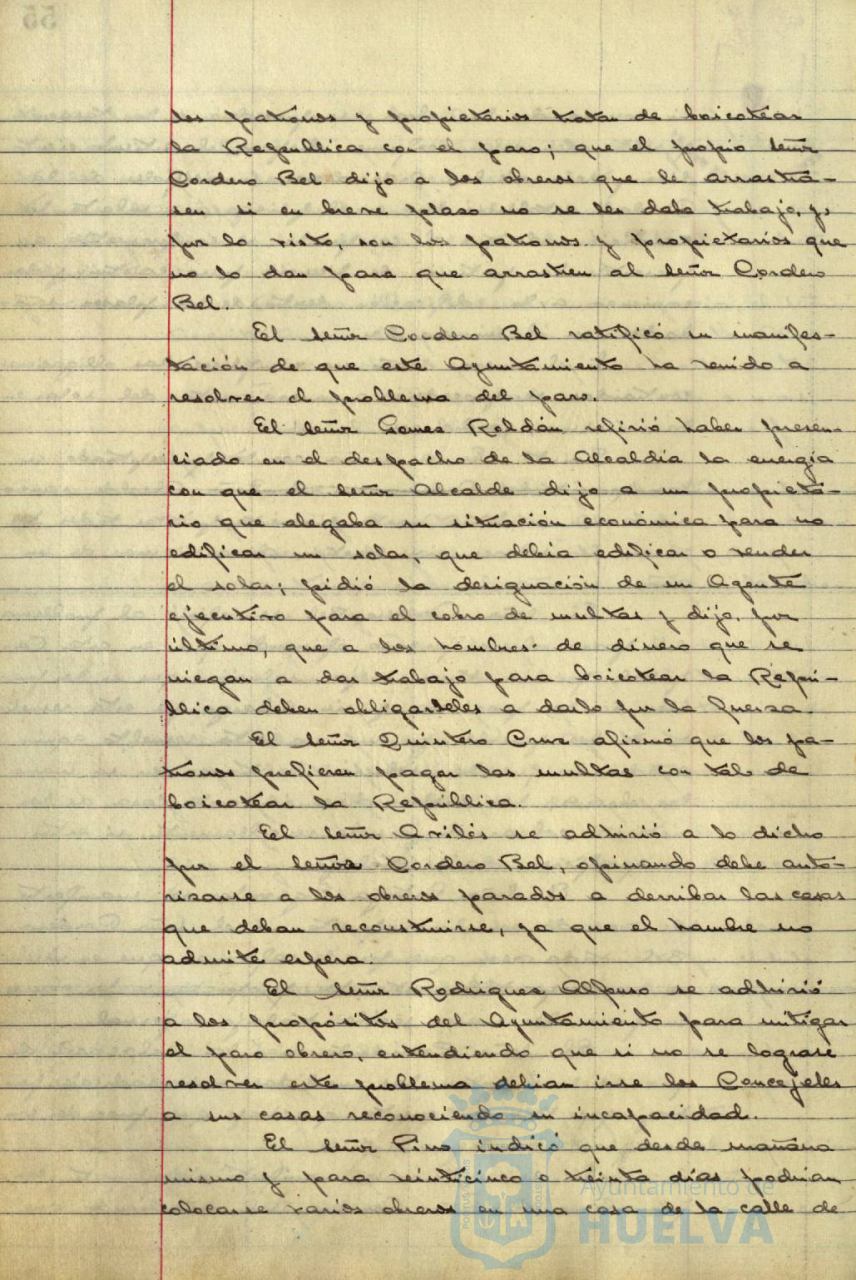 los patronos y propietarios tratan de boicotear
la República con el paro; que el propio señor
Cordero Bel dijo a los obreros que le arrastra-
sen si en breve plazo no se les daba trabajo, y,
por lo visto, son los patronos y propietarios que
no lo dan para que arrastren al señor Cordero
Bel.
El señor Cordero Bel ratificó su manifes-
tación de que este Ayuntamiento ha venido a
resolver el problema del paro.
El señor Gomez Roldán refirió haber presen-
ciado en el despacho de la Alcaldía la energía
con que el señor Alcalde dijo a un propieta-
rio que alegaba su situación económica para no
edificar un solar, que debía edificar o vender
el solar; pidió la designación de un Agente
ejecutivo para el cobro de multas y dijo, por
último, que a los hombres de dinero que se
niegan a dar trabajo para boicotear la Repú-
blica deben obligarseles a darlo por la fuerza.
El señor Quintero Cruz afirmó que los pa-
tronos prefieren pagar las multas con tal de
boicotear la República.
El señor Avilés se adhirió a lo dicho
por el señor Cordero Bel, opinando debe auto-
rizarse a los obreros parados a derribar las casas
que deban reconstruirse, ya que el hambre no
admite espera.
El señor Rodriguez Alfonso se adhirió
a los propósitos del Ayuntamiento para mitigar
el paro obrero, entendiendo que si no se lograse
resolver este problema debian irse los Concejales
a sus casas reconociendo su incapacidad.
El señor Pino indicó que desde mañana
mismo y para veinticinco o treinta días podrian
colocarse varios obreros en una casa de la calle de
Ayuntamiento de
HUELVA